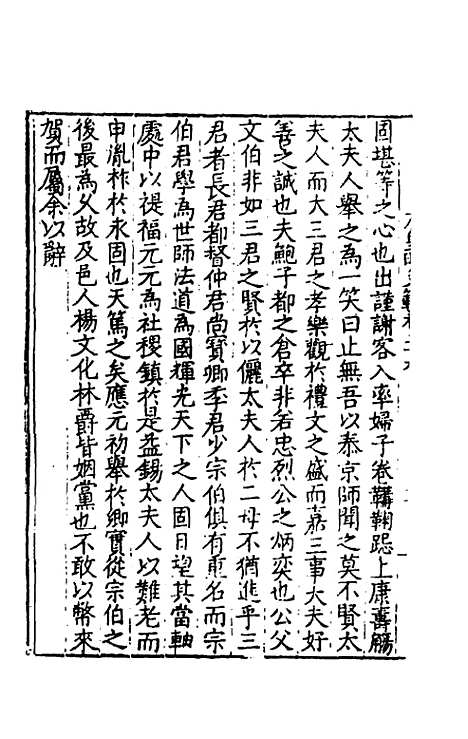 固堪等之心也出謹謝客入率婦子卷鞲鞠跽上康壽觴
太夫人舉之為一笑曰止無吾以忝京師聞之莫不賢太
夫人而大三君之孝樂觀於禮文之盛而嘉三事大夫好
善之誠也夫鮑子都之倉卒非若忠烈公之炳奕也公父
文伯非如三君之賢於以儷太夫人於二母不猶進乎三
君者長君都督仲君尚寶卿季君少宗伯俱有重名而宗
伯君學為世師法道為國輝光天下之人固日望其當軸
處中以禔福元元為社稷鎮於是益錫太夫人以難老而
申胤祚於永固也天篤之矣應元初舉於鄉實從宗伯之
後最為夂故及邑人楊文化林爵皆姻黨也不敢以幣來
賀而屬余以辭